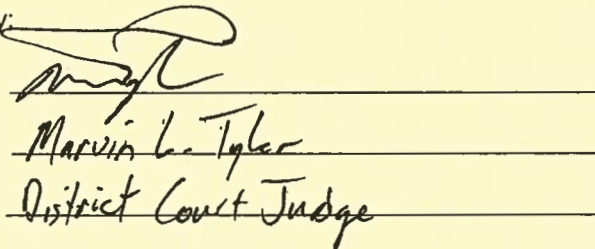 Marvin L. Tyler
District Court Judge